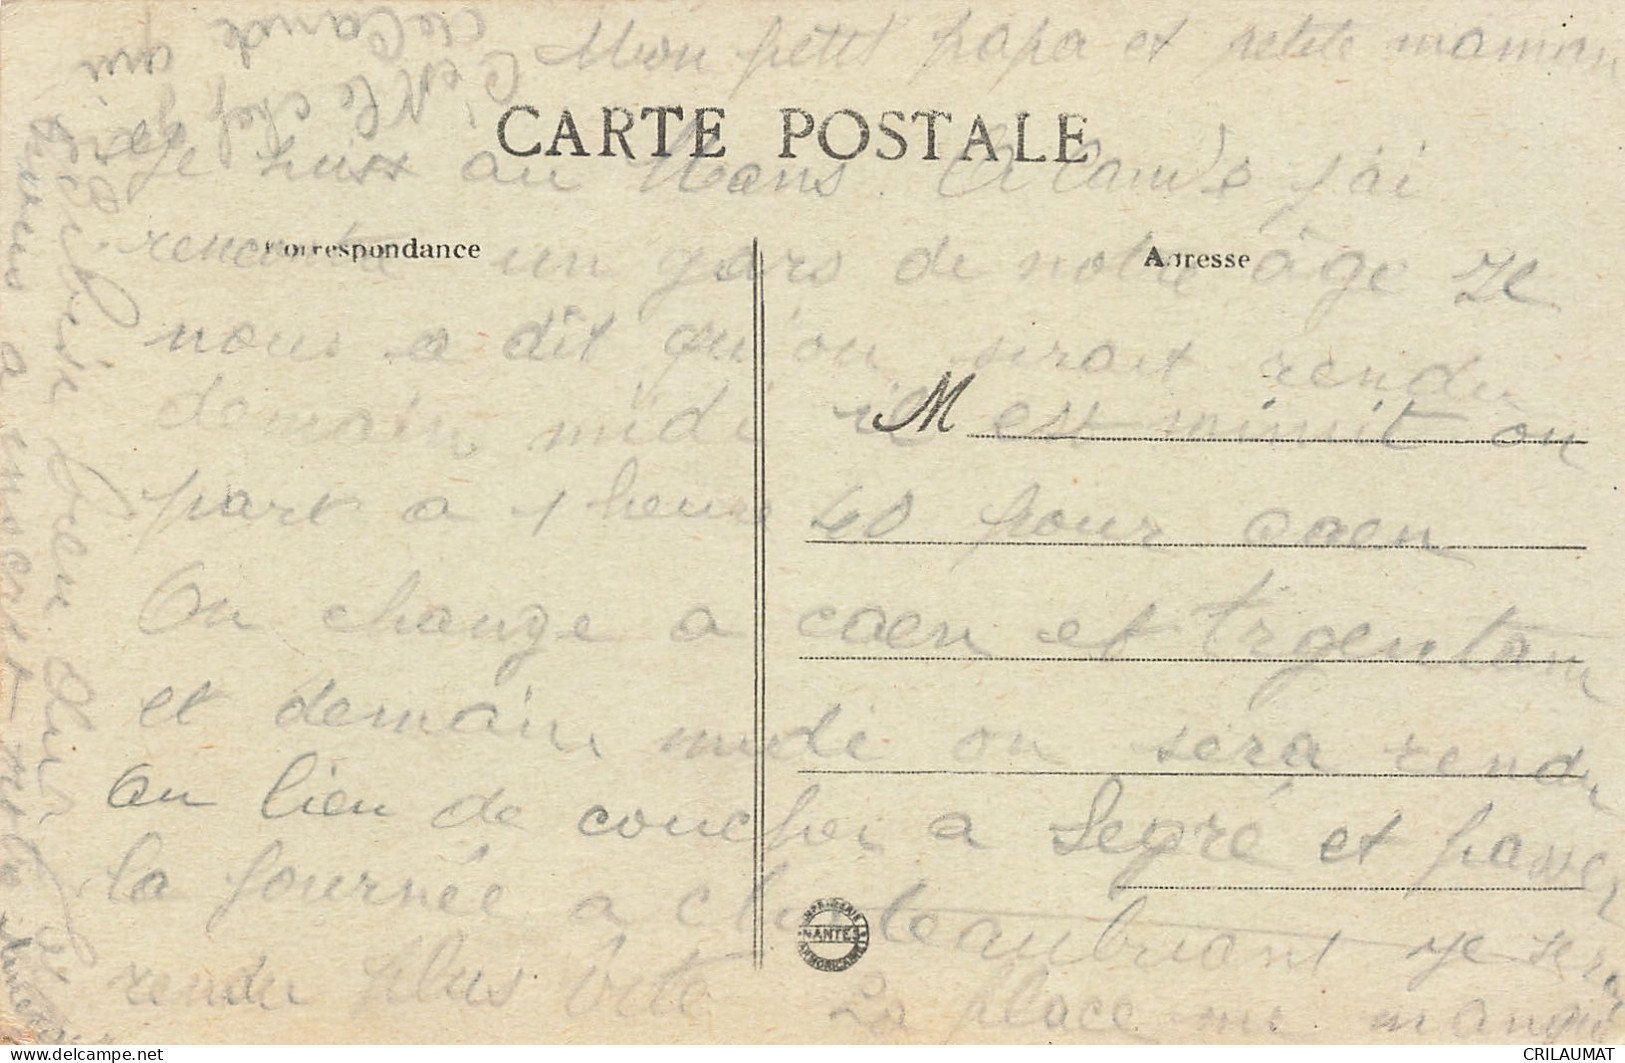 Mon petit papa et petite maman
CARTE POSTALE
Je suis au Mans. A Cande j'ai
Correspondance
Adresse
rencontré un gars de notre âge Il
nous a dit qu'on serait rendu
M
demain midi il est minuit on
part a 1 heure 40 pour caen
On change a caen et Argentan
et demain midi on sera rendu
Au lieu de coucher a Segré et passer
la journée a chateaubriant je serai
rendu plus vite La place me manque
IMPRIMERIE ARMORICAINE
NANTES
C'est le chef
de Cande qui
delcampe.net
CRILAUMAT